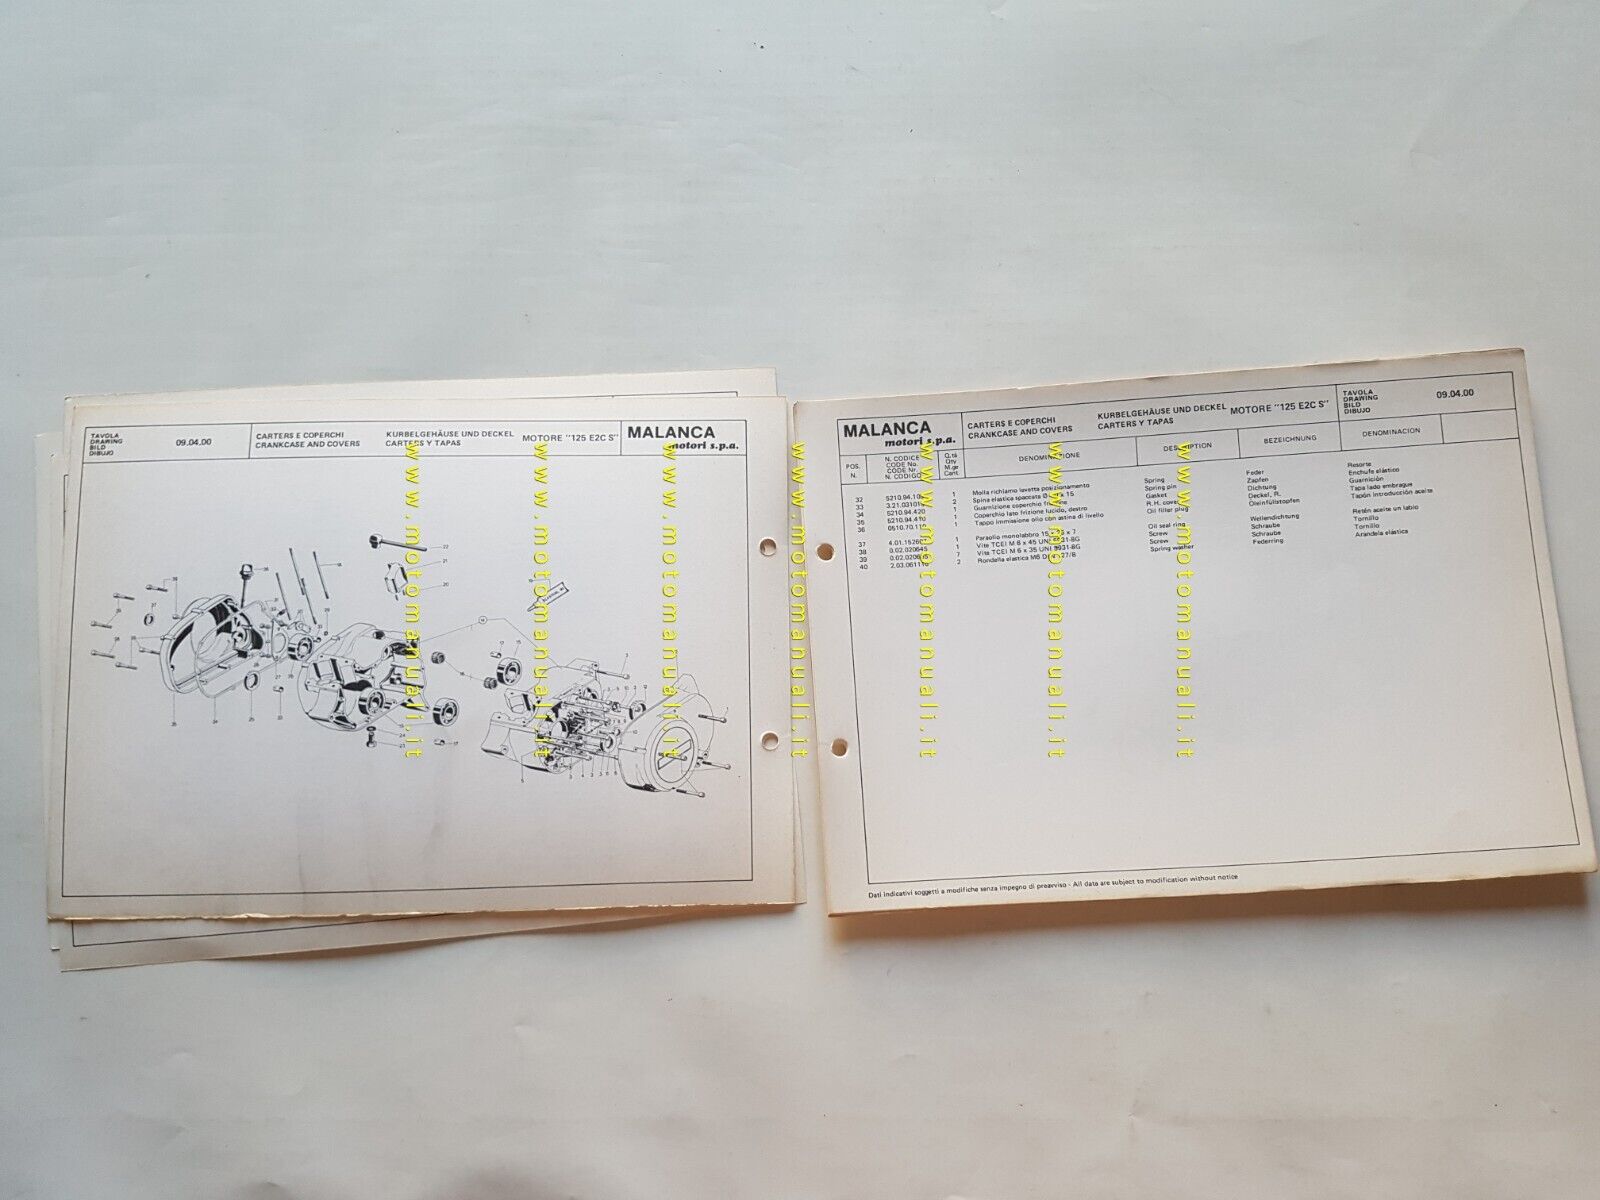 TAVOLA
DRAWING
BILD
DIBUJO
09.04.00
CARTERS E COPERCHI
CRANKCASE AND COVERS
KURBELGEHÄUSE UND DECKEL
CARTERS Y TAPAS
MOTORE "125 E2C S"
MALANCA
motori s.p.a.
www.motomanuali.it
www.motomanuali.it
www.motomanuali.it
www.motomanuali.it
www.motomanuali.it
www.motomanuali.it
www.motomanuali.it
MALANCA
motori s.p.a.
CARTERS E COPERCHI
CRANKCASE AND COVERS
KURBELGEHÄUSE UND DECKEL
CARTERS Y TAPAS
MOTORE "125 E2C S"
TAVOLA
DRAWING
BILD
DIBUJO
09.04.00
POS.
N.
N. CODICE
CODE No.
CODE Nr.
N. CODIGO
Q.tà
Qty
M.ge
Cant.
DENOMINAZIONE
DESCRIPTION
BEZEICHNUNG
DENOMINACION
32 5210.94 1 Molla richiamo levetta posizionamento Spring Feder Resorte
33 2 Spina elastica spaccata 15 Spring pin Zapfen Enchufe elástico
34 5210.94.420 1 Guarnizione coperchio Gasket Dichtung Guarnición
35 1 Coperchio lato frizione lucido, destro R.H. cover Deckel, R. Tapa lado embrague
36 1 Tappo immissione olio con astina di livello Oil filler plug Öleinfüllstopfen Tapón introducción aceite
37 1 Paraolio monolabbro 15 x 7 Oil seal ring Wellendichtung Retén aceite un labio
38 0.02.020645 1 Vite TCEI M 6 x 45 UNI 5931-8G Screw Schraube Tornillo
39 7 Vite TCEI M 6 x 35 UNI 5931-8G Screw Schraube Tornillo
40 2 Rondella elastica M6 Spring washer Federring Arandela elástica
Dati indicativi soggetti a modifiche senza impegno di preavviso - All data are subject to modification without notice